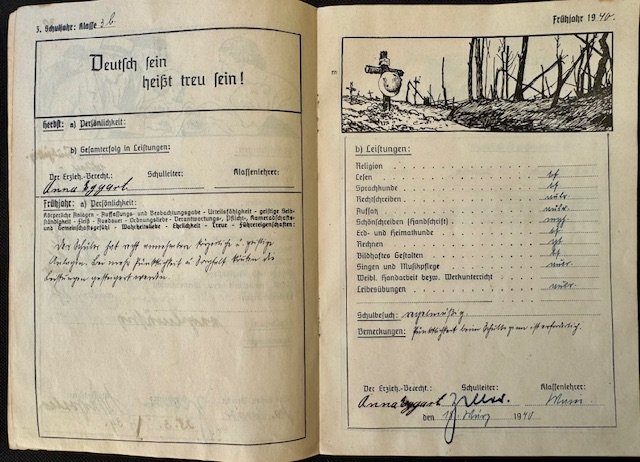 3. Schuljahr: Klasse 3 b
Deutsch sein
heißt treu sein!
Herbst: a) Persönlichkeit:
b) Gesamterfolg in Leistungen:
Der Erzieh.-Berecht.: Schulleiter: Klassenlehrer:
Anna Eggarb
Frühjahr: a) Persönlichkeit:
Körperliche Anlagen - Auffassungs- und Beobachtungsgabe - Urteilsfähigkeit - geistige Selb-
ständigkeit - Fleiß - Ausdauer - Ordnungsliebe - Verantwortungs-, Pflicht-, Kameradschafts-
und Gemeinschaftsgefühl - Wahrheitsliebe - Ehrlichkeit - Treue - Führereigenschaften:
Der Schüler hat recht annehmbare körperliche u. geistige
Anlagen. Bei mehr Pünktlichkeit u. Sorgfalt könnten die
Leistungen gesteigert werden.
Frühjahr 1940.
b) Leistungen:
Religion
Lesen
Sprachkunde
Rechtschreiben
Aufsatz
Schönschreiben (Handschrift)
Erd- und Heimatkunde
Rechnen
Bildhaftes Gestalten
Singen und Musikpflege
Weibl. Handarbeit bezw. Werkunterricht
Leibesübungen
Schulbesuch: regelmäßig.
Bemerkungen: Pünktlichkeit beim Schulbeginn ist erforderlich.
Der Erzieh.-Berecht.: Schulleiter: Klassenlehrer:
Anna Eggarb
den 18. März 1940